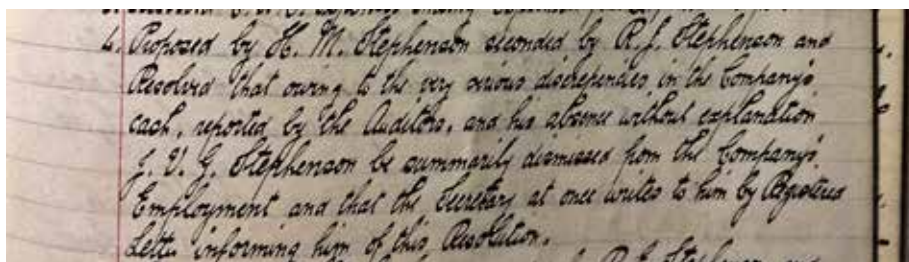 4. Proposed by H. M. Stephenson seconded by R. J. Stephenson and
Resolved that owing to the very serious discrepencies in the Company's
cash, reported by the Auditors, and his absence without explanation
J. V. G. Stephenson be summarily dismissed from the Company's
Employment and that the Secretary at once writes to him by Registered
Letter informing him of this Resolution.